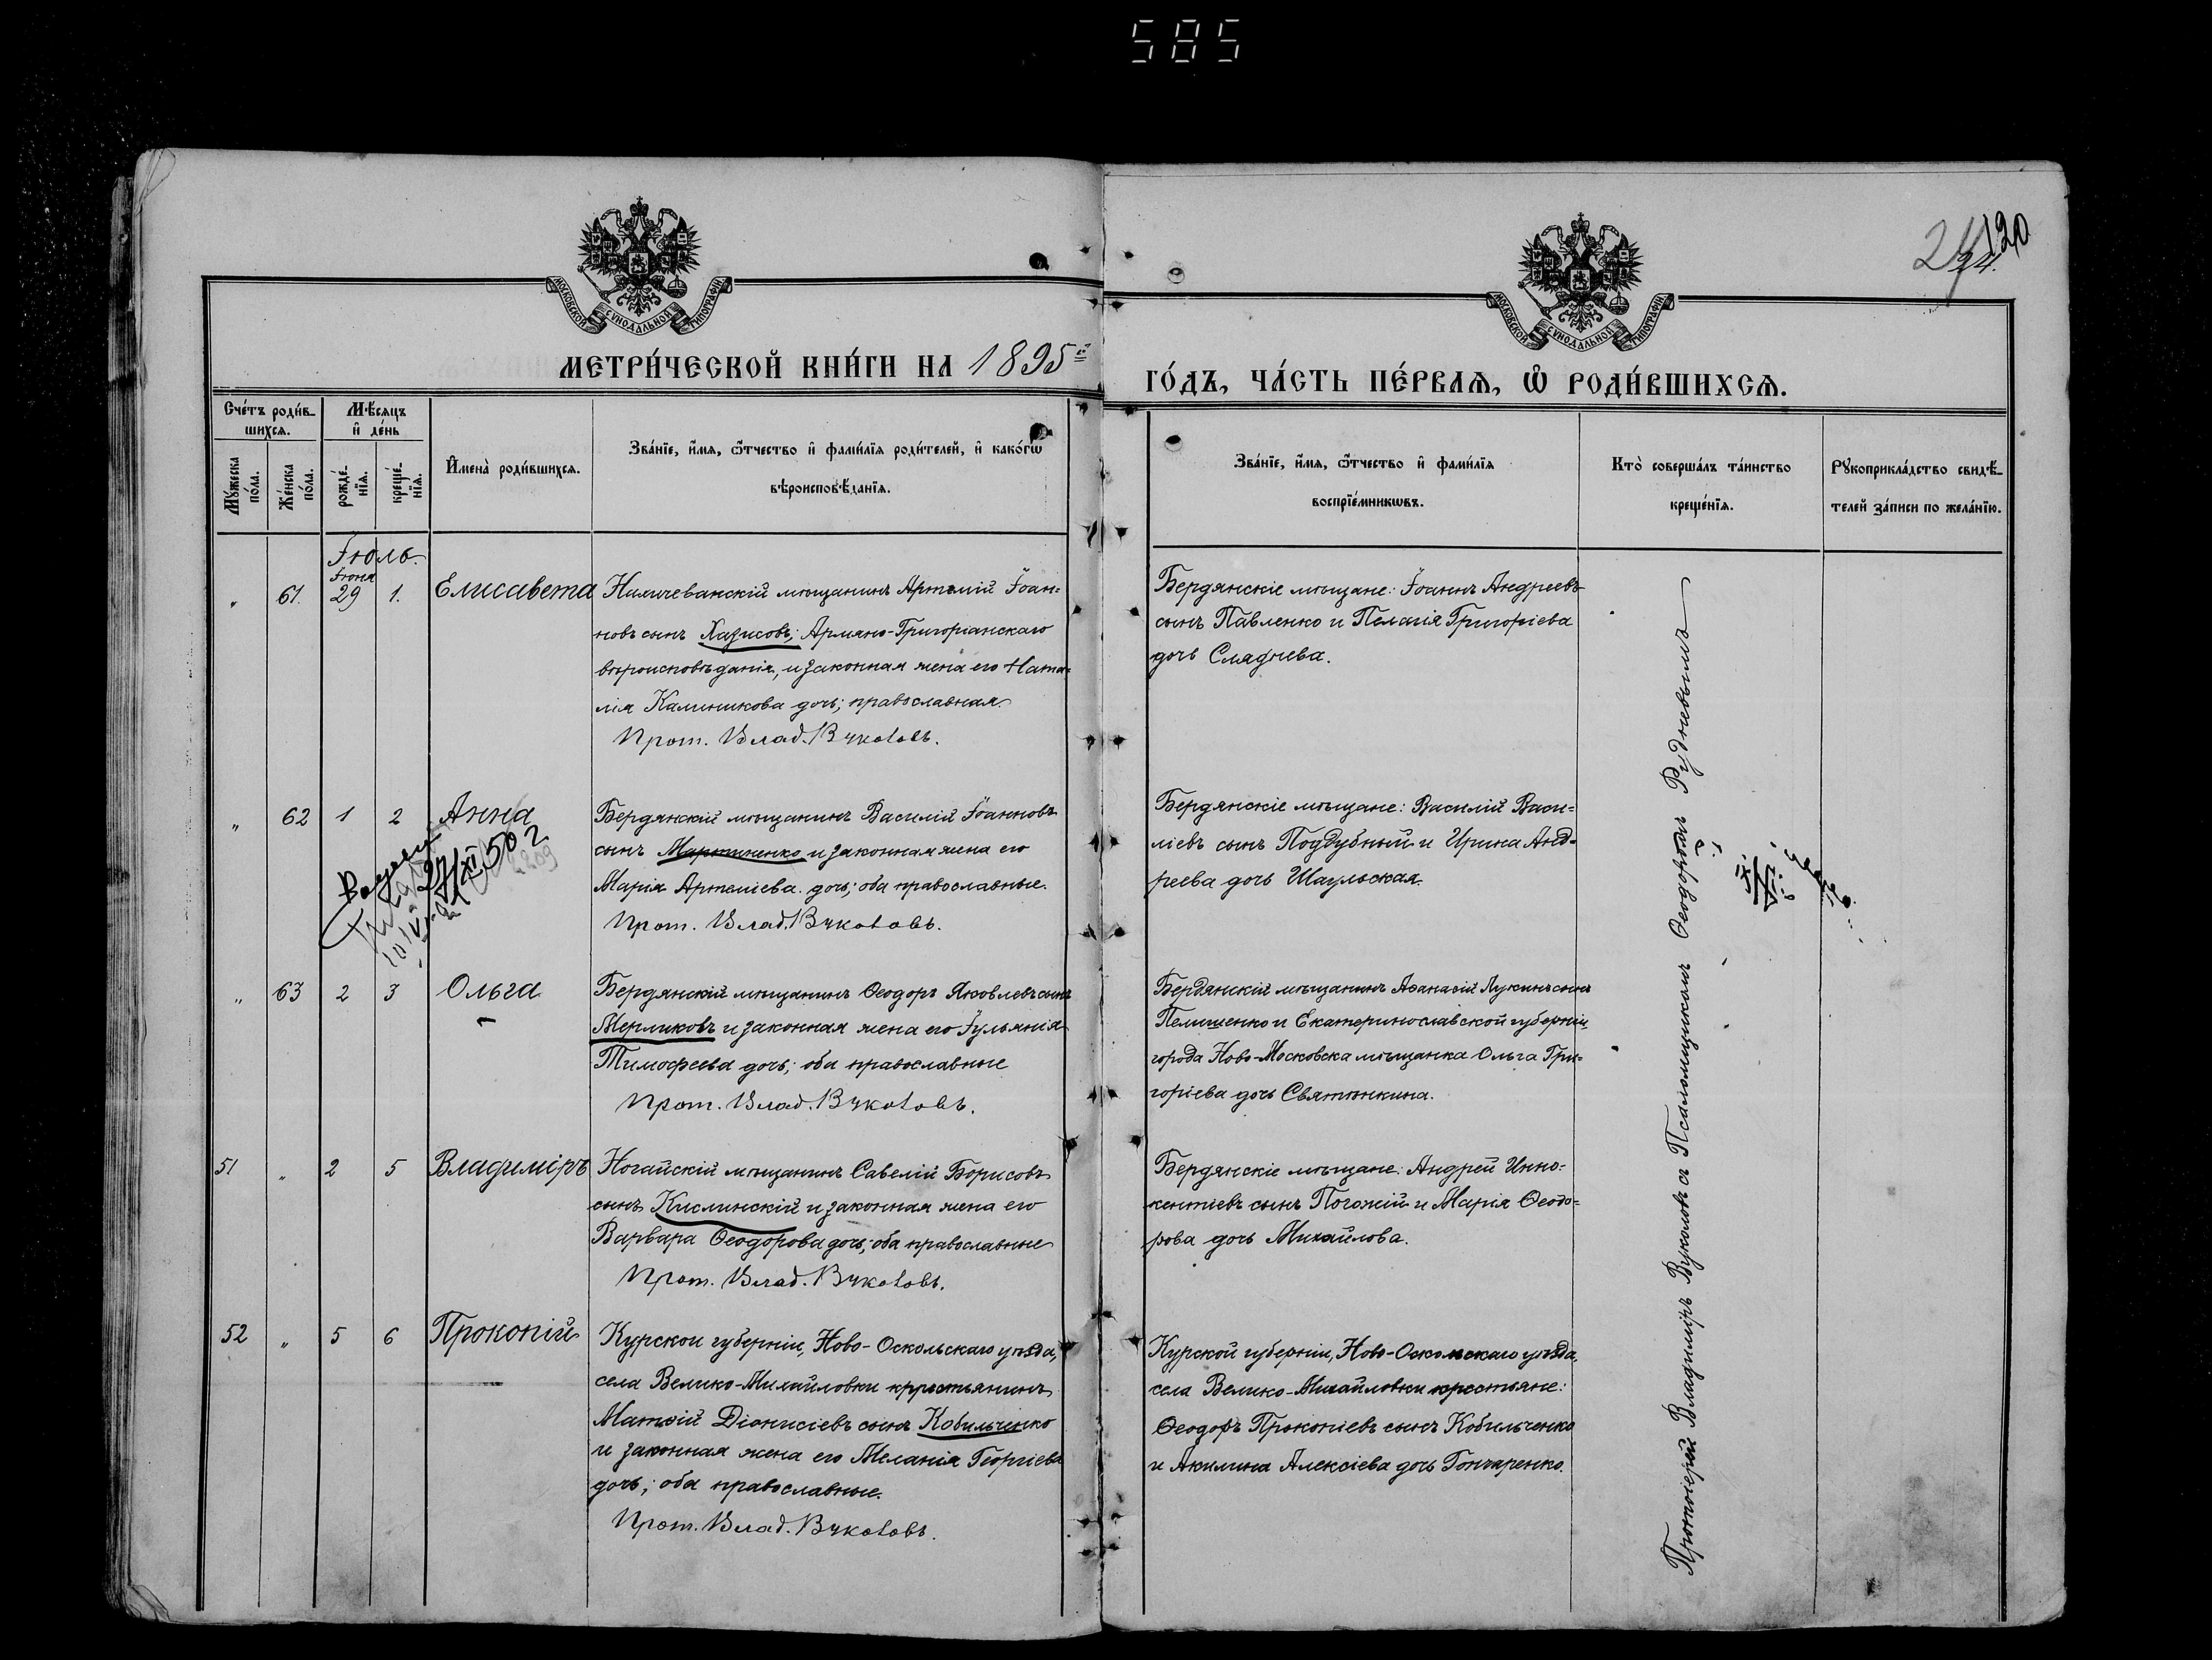 585
24
120
МОСКОВСКОЙ СѴНОДАЛЬНОЙ ТИПОГРАФІИ
МОСКОВСКОЙ СѴНОДАЛЬНОЙ ТИПОГРАФІИ
МЕТРИ́ЧЕСКОЙ КНИ́ГИ НА 1895й
ГО́ДЪ, ЧА́СТЬ ПЕ́РВАѦ, Ѡ РОДИ́ВШИХСѦ.
Сче́тъ роди́в-
шихсѧ.
Мѣ́сѧцъ
и҆ де́нь
Мꙋ́жеска
по́ла.
Же́нска
по́ла.
рожде́-
нїѧ.
креще́-
нїѧ.
И҆мена̀ роди́вшихсѧ.
Зва́нїе, и҆́мѧ, ѻ҆́тчество и҆ фами́лїѧ роди́телей, и҆ како́гѡ
вѣроисповѣ́данїѧ.
Зва́нїе, и҆́мѧ, ѻ҆́тчество и҆ фами́лїѧ
воспрїе́мникѡвъ.
Кто̀ соверша́лъ та́инство
креще́нїѧ.
Рꙋкоприкла́дство свидѣ́-
телей за́писи по жела́нїю.
Іюль.
Іюня
„ 61. 29 1. Елисавета
Нахичеванскій мѣщанинъ Артемій Іоан-
новъ сынъ Хазисовъ; Армяно-Григоріанскаго
вѣроисповѣданія, и законная жена его Ната-
лія Калиникова дочь; православная.
Прот. Влад. Вуколовъ.
Бердянскіе мѣщане: Іоаннъ Андреевъ
сынъ Павленко и Пелагія Григоріева
дочь Сляднева.
„ 62 1 2 Анна
27/XI 50 г.
Бердянскій мѣщанинъ Василій Іоанновъ
сынъ Мартиненко и законная жена его
Марія Артеміева дочь; оба православные.
Прот. Влад. Вуколовъ.
Бердянскіе мѣщане: Василій Васи-
ліевъ сынъ Поддубный и Ирина Анд-
реева дочь Шагульская.
„ 63 2 3 Ольга
Бердянскій мѣщанинъ Ѳеодоръ Яковлевъ сынъ
Мерликовъ и законная жена его Іуліанія
Тимофеева дочь; оба православные
Прот. Влад. Вуколовъ.
Бердянскій мѣщанинъ Аѳанасій Лукинъ сынъ
Пелишенко и Екатеринославской губерніи,
города Ново-Московска мѣщанка Ольга Гри-
горіева дочь Святынкина.
51 „ 2 5 Владиміръ
Ногайскій мѣщанинъ Савелій Борисовъ
сынъ Кислинскій и законная жена его
Варвара Ѳеодорова дочь; оба православные
Прот. Влад. Вуколовъ.
Бердянскіе мѣщане: Андрей Инно-
кентіевъ сынъ Погожій и Марія Ѳеодо-
рова дочь Михайлова.
52 „ 5 6 Прокопій
Курской губерніи, Ново-Оскольскаго уѣзда,
села Велико-Михайловки крестьянинъ
Матѳій Діонисіевъ сынъ Кобильченко
и законная жена его Меланія Георгіева
дочь; оба православные.
Прот. Влад. Вуколовъ.
Курской губерніи, Ново-Оскольскаго уѣзда,
села Велико-Михайловки крестьяне:
Ѳеодоръ Прокопіевъ сынъ Кобильченко
и Акилина Алексіева дочь Гончаренко.
Протоіерей Владиміръ Вуколовъ съ Псаломщикомъ Ѳеодоромъ Рудневымъ